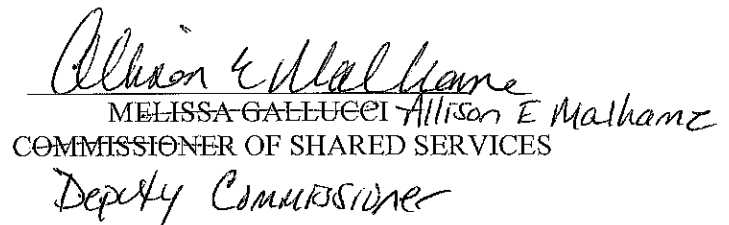 Allison E Malhame
MELISSA GALLUCCI Allison E Malhame
COMMISSIONER OF SHARED SERVICES
Deputy Commissioner